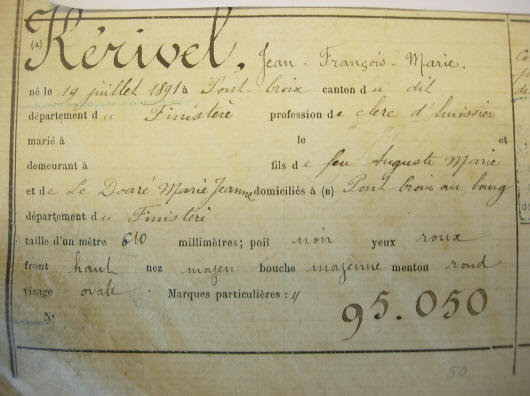 (A) Kérivel, Jean-François-Marie.
né le 19 juillet 1891 à Pont-Croix canton du dit
département du Finistère profession de clerc d'huissier
marié à le et
demeurant à fils de feu Auguste Marie
et de Le Doaré Marie Jeanne domiciliés à (B) Pont Croix au bourg
département du Finistère
taille d'un mètre 610 millimètres; poil noir yeux roux
front haut nez moyen bouche moyenne menton rond
visage ovale . Marques particulières : //
N° 95.050
50